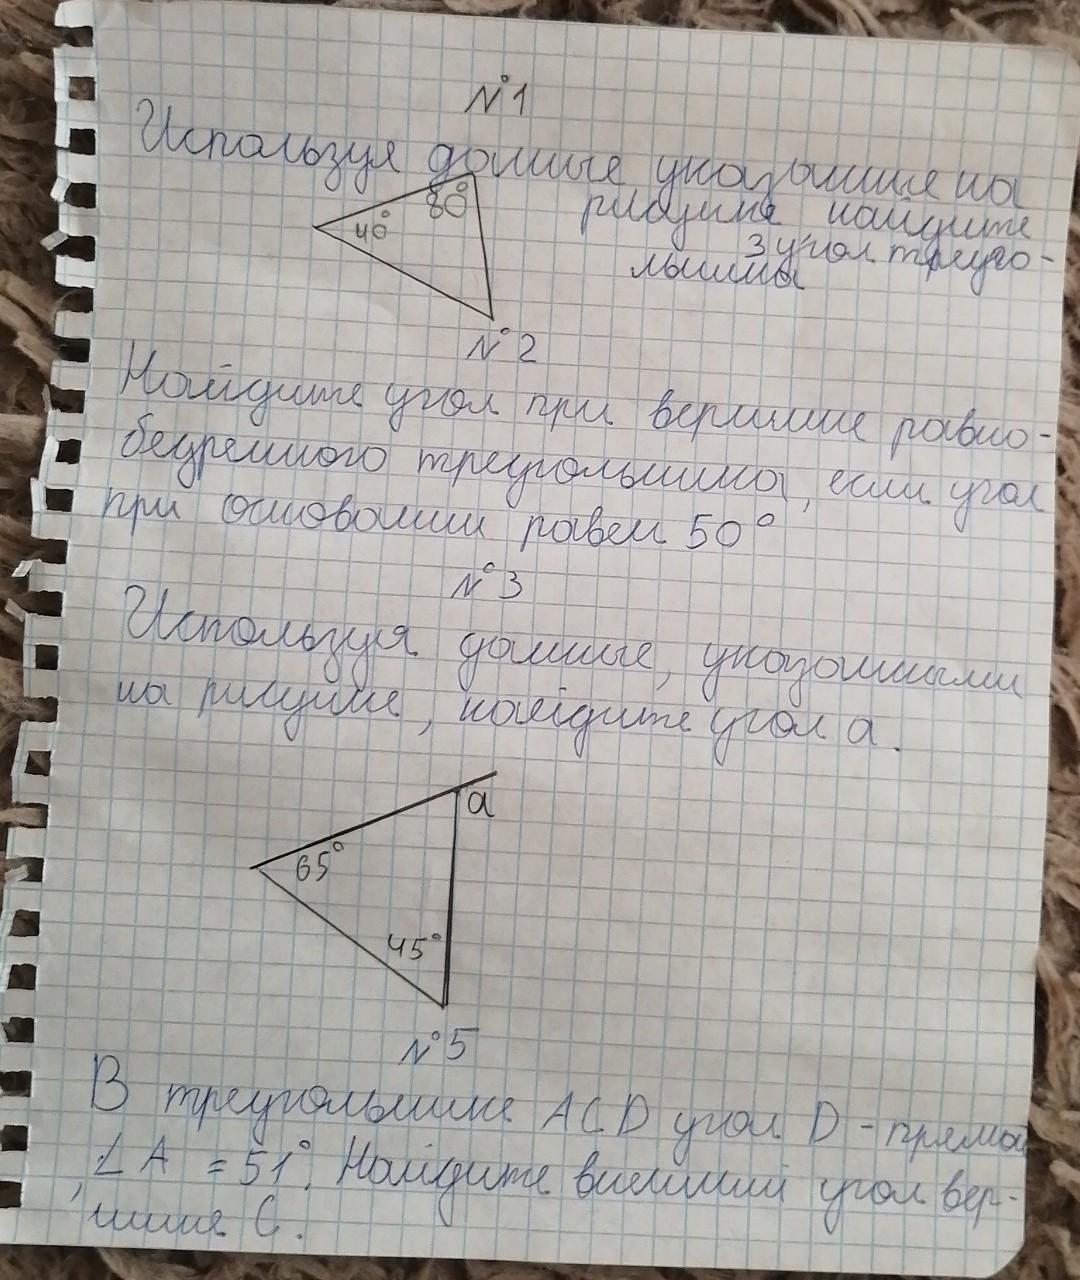 №1
Используя данные указанние на
80°
40°
рисунке найдите
3 угол треуго-
льника
№2
Найдите угол при вершине равно-
бедренного треугольника, если угол
при основании равен 50°
№3
Используя данные, указанными
на рисунке, найдите угол а.
а
65°
45°
№5
В треугольнике ACD угол D - прямой
, ∠A = 51°. Найдите внешний угол вер-
шине С.